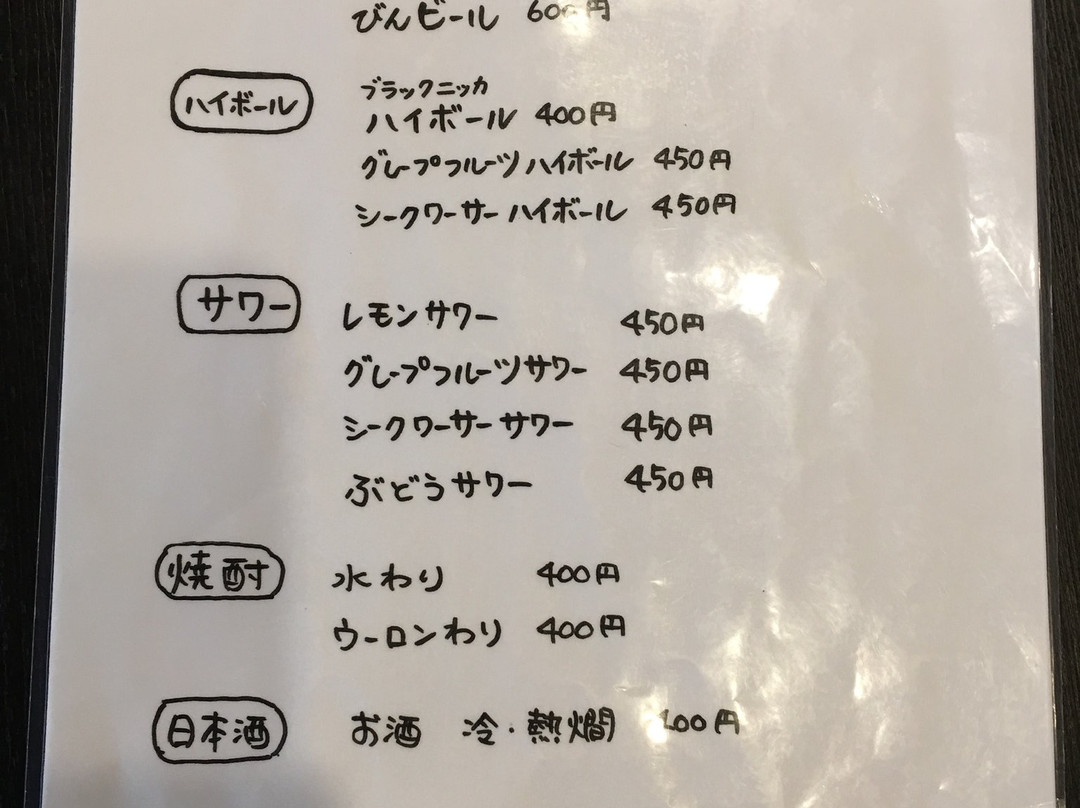 びんビール 600円
ハイボール
ブラックニッカ
ハイボール 400円
グレープフルーツハイボール 450円
シークワーサーハイボール 450円
サワー
レモンサワー 450円
グレープフルーツサワー 450円
シークワーサーサワー 450円
ぶどうサワー 450円
焼酎
水わり 400円
ウーロンわり 400円
日本酒
お酒 冷・熱燗